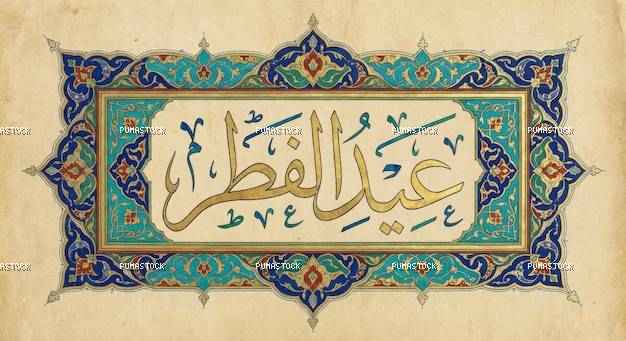 عِيدُ الفطر
PUMASTOCK PUMASTOCK PUMASTOCK PUMASTOCK
PUMASTOCK PUMASTOCK PUMASTOCK PUMASTOCK